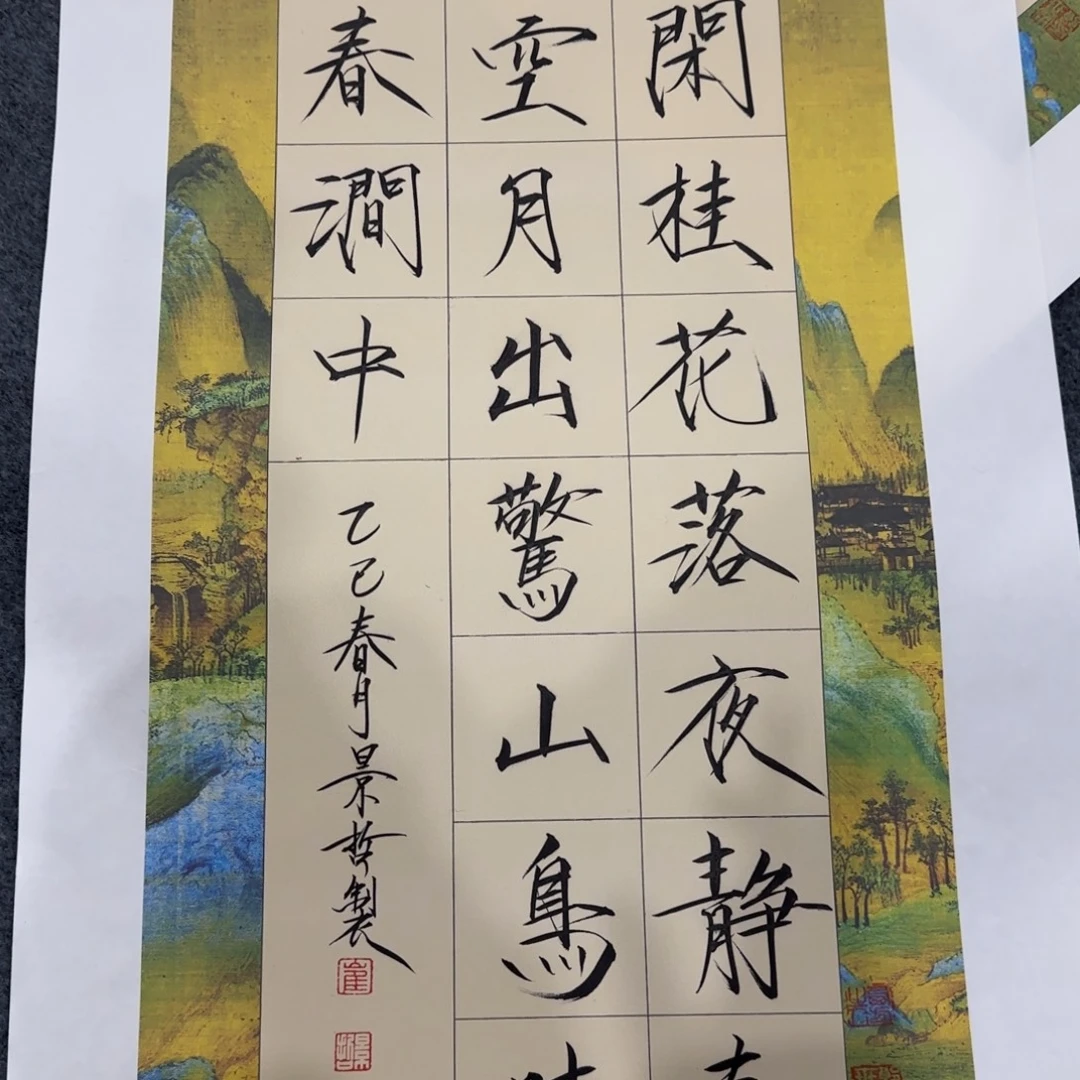 閑桂花落夜静
空月出驚山鳥
春澗中
乙巳春月景哲製
崔
景哲